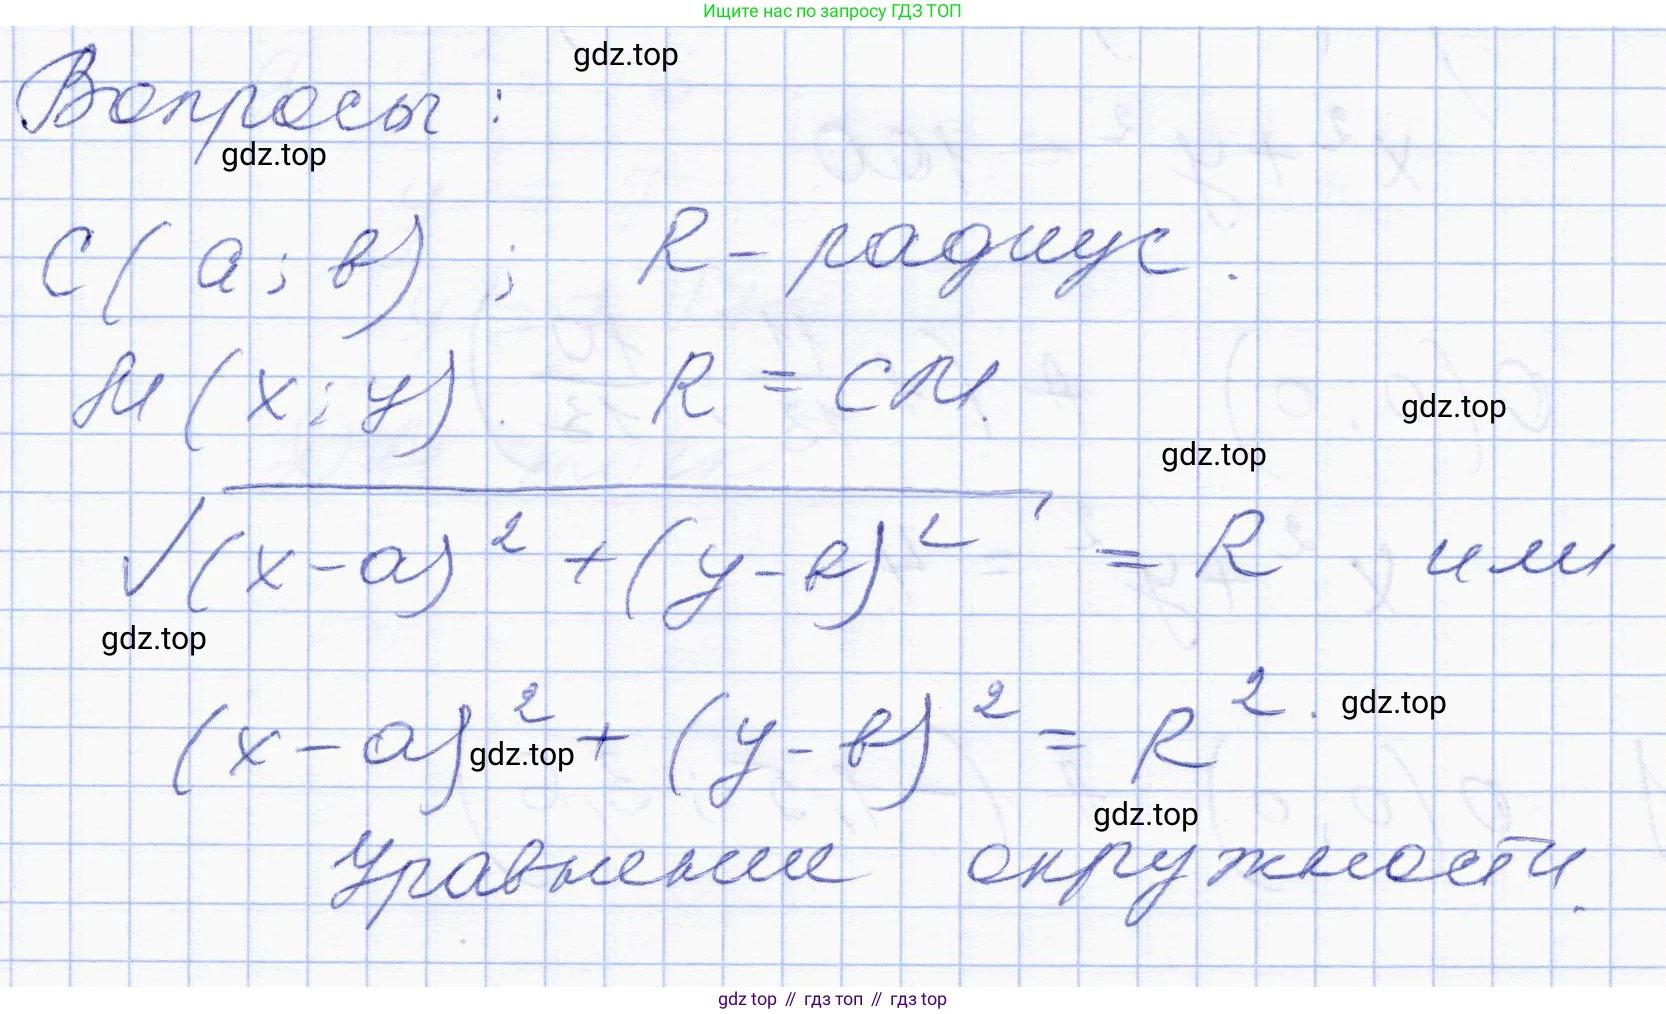 Ищите нас по запросу ГДЗ ТОП
gdz.top
Вопросы:
gdz.top
C(a; в); R - радиус.
M(x; y). R = CM.
gdz.top
gdz.top
√(x-a)² + (y-в)² = R или
gdz.top
(x-a)² + (y-в)² = R².
gdz.top
gdz.top
gdz.top
Уравнение окружности.
gdz top // гдз топ // гдз top